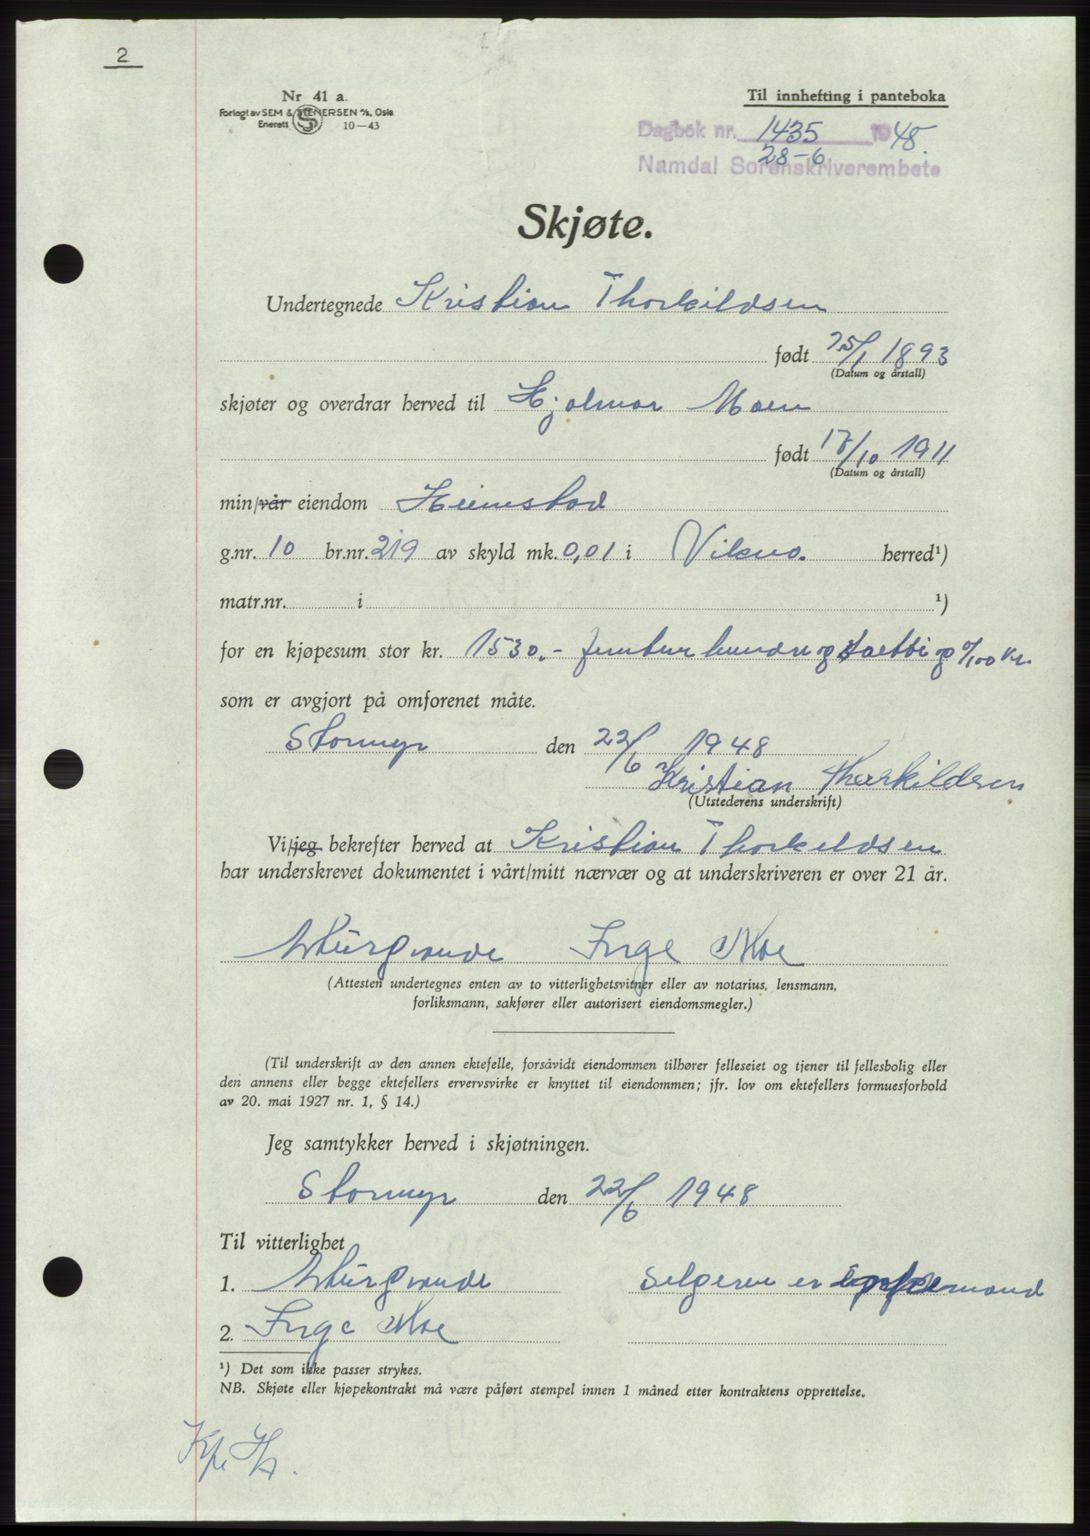 2
Nr 41 a.
Forlagt av SEM & STENERSEN A/S, Oslo
Enerett 10—43
Til innhefting i panteboka
Dagbok nr. 1435 1948.
28-6
Namdal Sorenskriverembete
Skjøte.
Undertegnede Kristian Thorkildsen
født 25/1 1893
(Datum og årstall)
skjøter og overdrar herved til Hjalmar Moen
født 17/10 1911
(Datum og årstall)
min/vår eiendom Heimstad
g.nr. 10 br.nr. 219 av skyld mk. 0,01 i Vikna. herred¹)
matr.nr. i ¹)
for en kjøpesum stor kr. 1530.- femten hundre og tretti og 0/100 kr.
som er avgjort på omforenet måte.
Stormyr den 22/6 1948
Kristian Thorkildsen
(Utstederens underskrift)
Vi/jeg bekrefter herved at Kristian Thorkildsen
har underskrevet dokumentet i vårt/mitt nærvær og at underskriveren er over 21 år.
Inge Moe
(Attesten undertegnes enten av to vitterlighetsvitner eller av notarius, lensmann,
forliksmann, sakfører eller autorisert eiendomsmegler.)
(Til underskrift av den annen ektefelle, forsåvidt eiendommen tilhører felleseiet og tjener til fellesbolig eller
den annens eller begge ektefellers ervervsvirke er knyttet til eiendommen; jfr. lov om ektefellers formuesforhold
av 20. mai 1927 nr. 1, § 14.)
Jeg samtykker herved i skjøtningen.
Stormyr den 22/6 1948
Til vitterlighet
1. Selgeren er
2. Inge Moe
¹) Det som ikke passer strykes.
NB. Skjøte eller kjøpekontrakt må være påført stempel innen 1 måned etter kontraktens opprettelse.